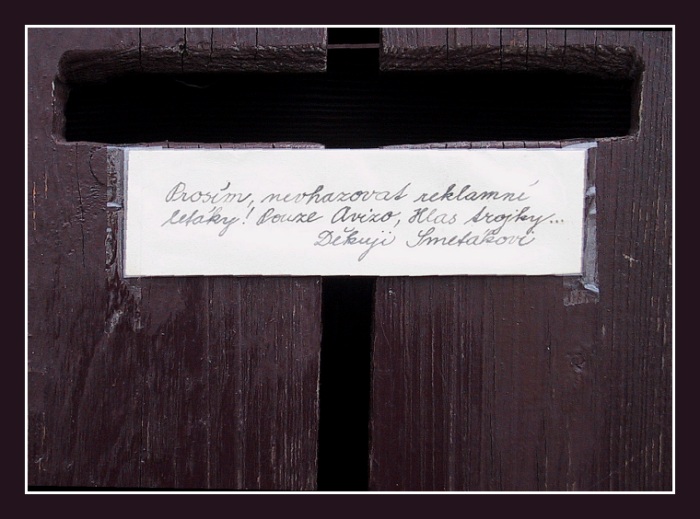 Prosím, nevhazovat reklamní
letáky! Pouze Avizo, Hlas trojky...
Děkuji Smetákovi